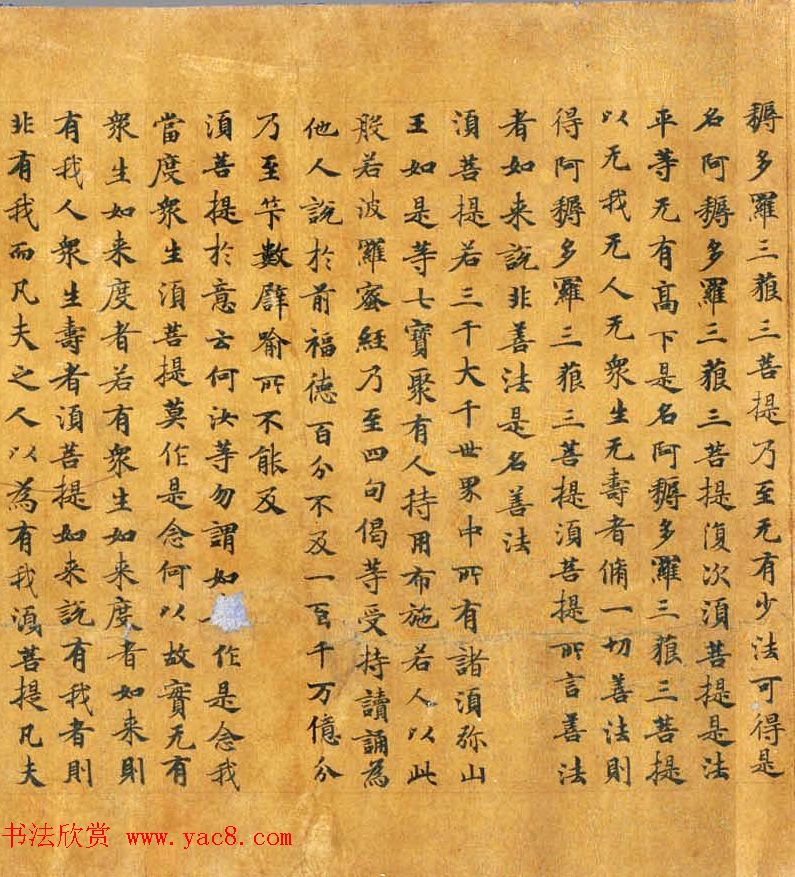 耨多羅三藐三菩提乃至无有少法可得是
名阿耨多羅三藐三菩提復次湏菩提是法
平等无有高下是名阿耨多羅三藐三菩提
以无我无人无衆生无壽者脩一切善法則
得阿耨多羅三藐三菩提湏菩提所言善法
者如来説非善法是名善法
湏菩提若三千大千世界中所有諸湏弥山
王如是等七寶聚有人持用布施若人以此
般若波羅蜜經乃至四句偈等受持讀誦為
他人説於前福德百分不及一百千万億分
乃至筭數譬喻所不能及
湏菩提於意云何汝等勿謂如作是念我
當度衆生湏菩提莫作是念何以故實无有
衆生如来度者若有衆生如来度者如来則
有我人衆生壽者湏菩提如来説有我者則
非有我而凡夫之人以為有我湏菩提凡夫
书法欣赏 www.yac8.com